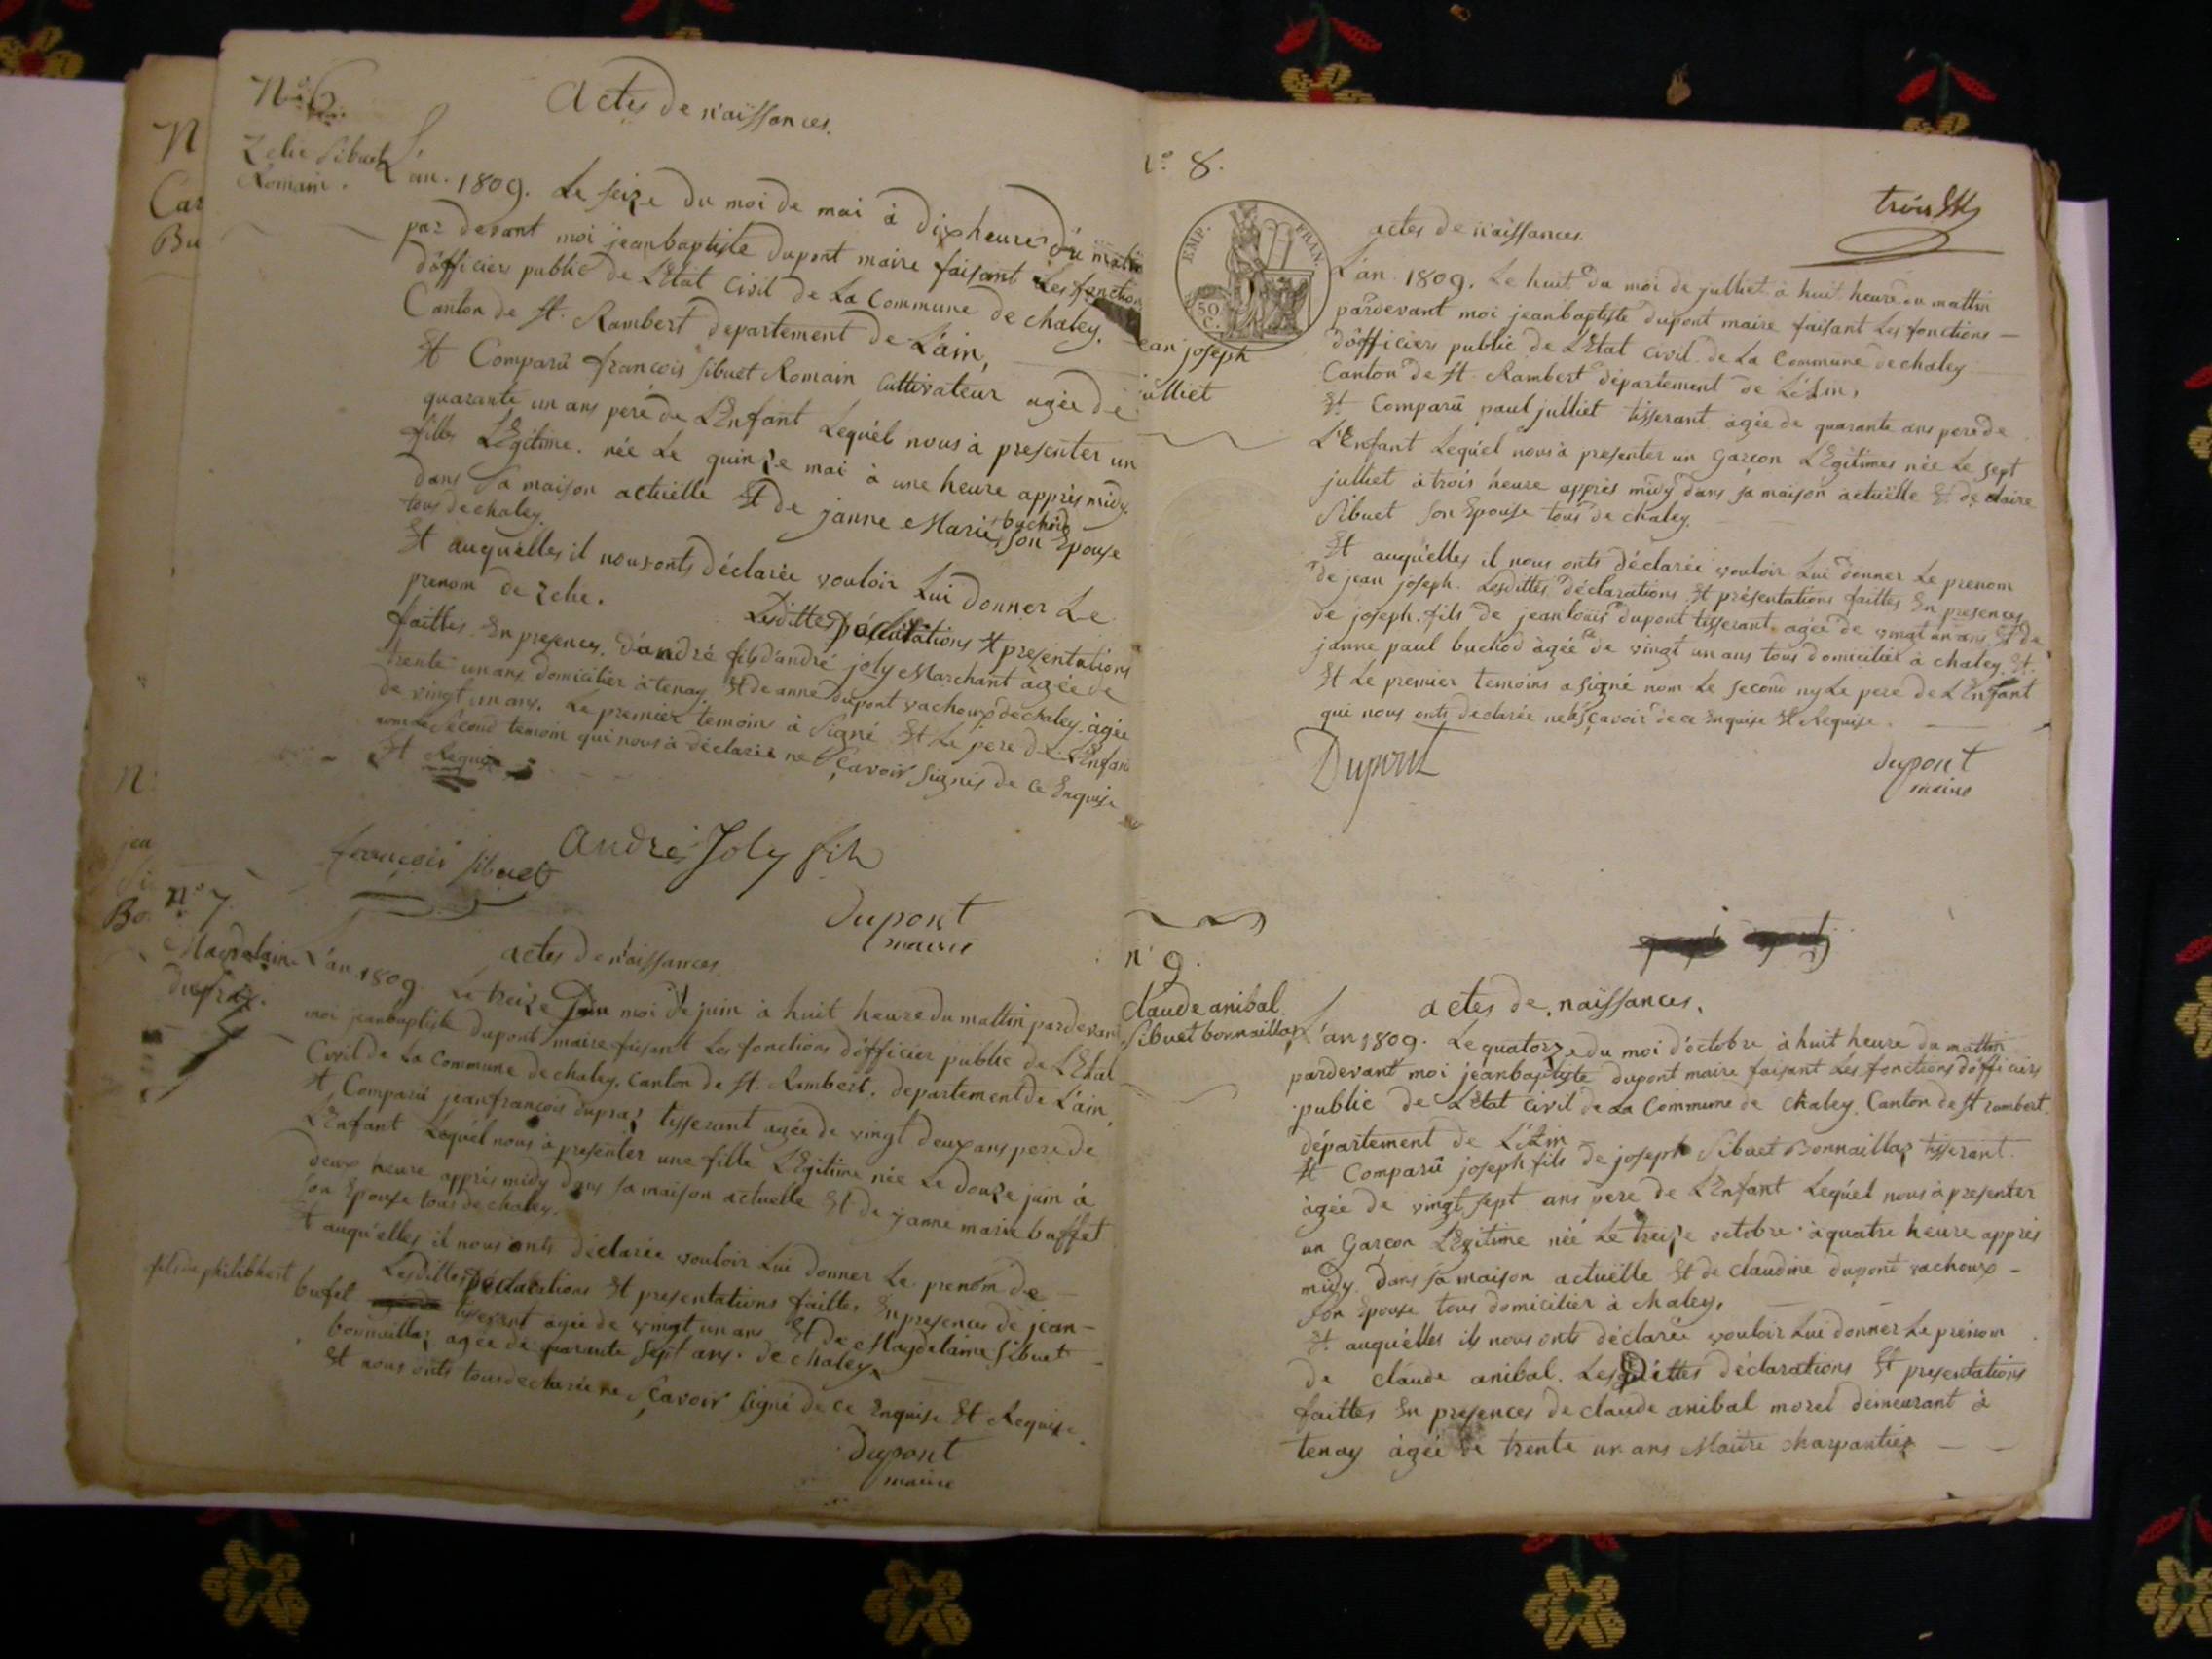 N° 6
Zelie Sibuet
Romain.
Actes de naissances.
L'an. 1809. Le seize du moi de mai à dix heures du matin
par devant moi jeanbaptiste dupont maire faisant Les fonction
d'officiers public de L'Etat Civil de La Commune de chaley.
Canton de St. Rambert departement de L'ain,
Et Comparû françois Sibuet Romain Cultivateur agée de
quarante un ans pere de L'Enfant Lequél nous à presenter un
fille LEgitime. née Le quinze mai à une heure apprès midy.
dans sa maison actuëlle Et de janne Marie buchod son Epouse
tous de chaley.
Et auquélles il nous onts déclarée vouloir Lui donner Le
prenom de zelie.
Lesdittes déclarations Et presentations
faittes En presences. d'andré fils d'andré joly Marchant àgée de
trente un ans domicilier à tenay Et de anne dupont vachoux de chaley. àgée
de vingt un ans. Le premier temoins à Signé Et Le pere de L'Enfan
non Le Second temoin qui nous à déclarée ne Sçavoir signés de ce Enquise
Et Requise
françois sibuet
André Joly fils
dupont
maire
N° 7
Magdelaine
dupraz.
actes de naissances.
L'an 1809. Le treize du moi de juin à huit heure du mattin pardevant
moi jeanbaptiste dupont maire faisant Les fonctions d'officier public de L'Etat
Civil de La Commune de chaley. Canton de St. Rambert. departement de L'ain,
Et Comparû jeanfrancois dupraz tisserant agée de vingt deux ans pere de
L'Enfant Lequél nous à presenter une fille LEgitime née Le douze juin à
deux heure apprés midy dans sa maison actuelle Et de janne marie buffet
son Epouse tous de chaley.
Et auquélles il nous onts déclarée vouloir Lui donner Le prenom de
Lesdittes déclarations Et presentations faittes En presences de jean
fils de philibbert
bufet tisserant agée de vingt un ans Et de Magdelaine Sibuet
bonnaillaz agée de quarante sept ans. de chaley
Et nous onts tous declarée ne Sçavoir signé de ce Enquise Et Requise.
dupont
maire
N° 8.
EMP. FRAN.
50
C.
trois
ean joseph
ulliet
actes de naissances.
L'an. 1809. Le huit du moi de julliet à huit heure du mattin
pardevant moi jeanbaptiste dupont maire faisant Les fonctions
d'officiers public de L'Etat civil de La Commune de chaley
Canton de St. Rambert département de L'Ain,
Et Comparû paul julliet tisserant àgée de quarante ans pere de
L'Enfant Lequél nous à presenter un Garcon LEgitimes née Le sept
julliet à trois heure apprès midy dans sa maison actuëlle Et de claire
Sibuet son Epouse tous de chaley.
Et auquélles il nous onts déclarée vouloir Lui donner Le prenom
de jean joseph. Lesdittes déclarations Et présentations faittes En presences
de joseph. fils de jeanlouis dupont tisserant agée de vingt un ans Et de
janne paul buchod àgée de vingt un ans tous domicilier à chaley. Et
Et Le premier temoins a signé nom Le second ny Le pere de L'Enfant
qui nous onts declarée ne Sçavoir de ce Enquise Et Requise.
Dupont
dupont
maire
n° 9.
claude anibal
Sibuet bonnaillaz
actes de naissances.
L'an 1809. Le quatorze du moi d'octobre à huit heure du mattin
pardevant moi jeanbaptiste dupont maire faisant Les fonctions d'officiers
public de L'Etat Civil de La Commune de chaley. Canton de St rambert.
département de L'Ain
Et Comparû joseph fils de joseph Sibuet Bonnaillaz tisserant.
àgée de vingt sept ans pere de L'Enfant Lequél nous à presenter
un Garçon LEgitime née Le treize octobre à quatre heure apprès
midy dans sa maison actuëlle Et de claudine dupont vachoux
son Epouse tous domicilier à chaley,
Et auquélles ils nous onts déclarée vouloir Lui donner Le prénom
de claude anibal. Lesdittes déclarations Et presentations
faittes En presences de claude anibal morel demeurant à
tenay àgée de trente un ans Maître charpantier